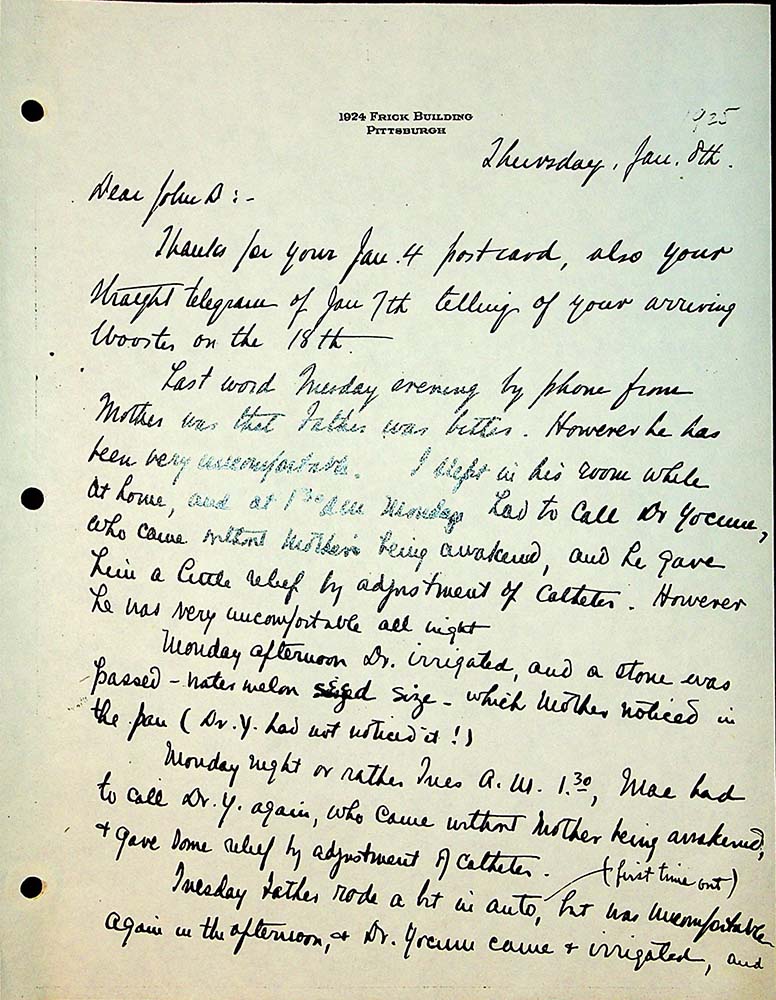 1924 FRICK BUILDING
PITTSBURGH
1925
Thursday, Jan. 8th.
Dear John D:-
Thanks for your Jan. 4 postcard, also your
straight telegram of Jan 7th telling of your arriving
Wooster on the 18th
Last word Tuesday evening by phone from
Mother was that Father was better. However he has
been very uncomfortable. I slept in his room while
at home, and at 1 30 AM Monday had to call Dr Yocum,
who came without Mother's being awakened, and he gave
him a little relief by adjustment of catheter. However
he was very uncomfortable all night
Monday afternoon Dr. irrigated, and a stone was
passed - watermelon seed size - which Mother noticed in
the pan (Dr. Y. had not noticed it!)
Monday night or rather Tues A.M. 1.30, Mae had
to call Dr. Y. again, who came without Mother being awakened,
+ gave some relief by adjustment of catheter.
(first time out)
Tuesday Father rode a bit in auto, but was uncomfortable
again in the afternoon, + Dr. Yocum came + irrigated, and